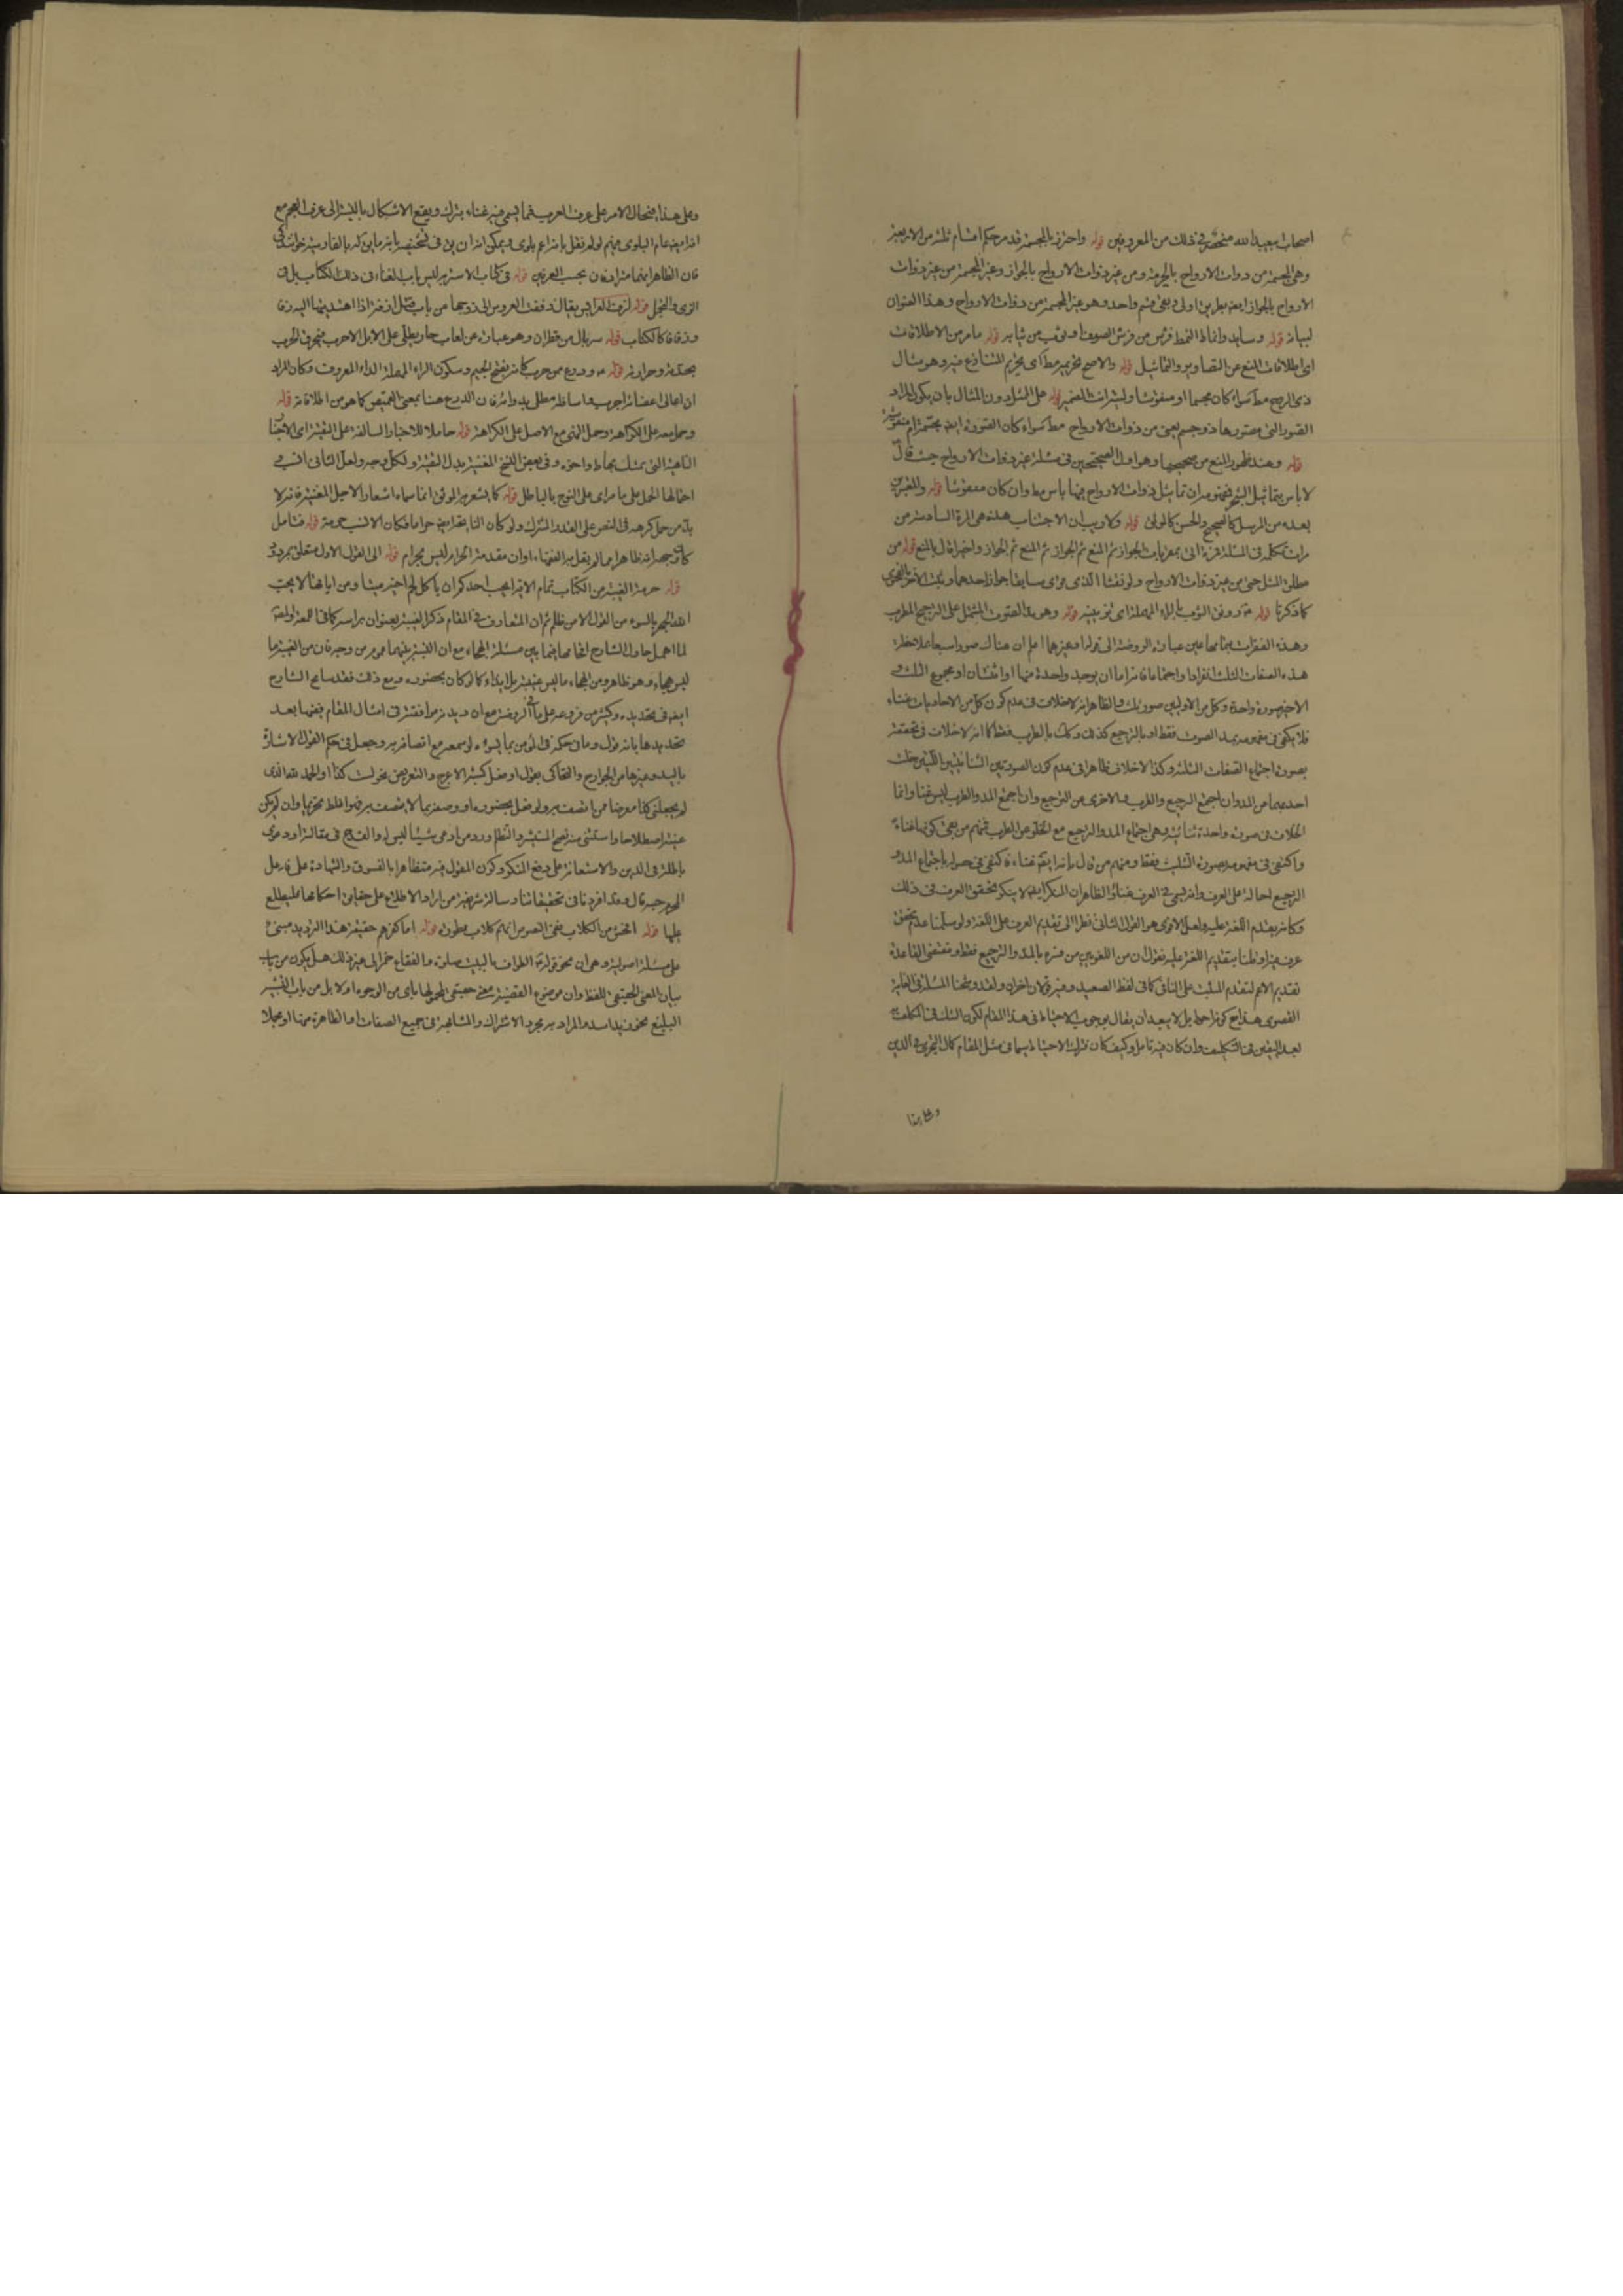 اصحاب سعيد الله منحصر فى ذلك من المعروفين قوله واحترز بالمجسمة قد مر حكم اقسام ثلثة من الاربعة
وهى المجسمة من ذوات الارواح بالحرمة ومن غير ذوات الارواح بالجواز وغير المجسمة من غير ذوات
الارواح بالجواز ايضا بطريق اولى وبقى قسم واحد وهو غير المجسمة من ذوات الارواح وهذا العنوان
لبيانه قوله وسايد وانماط النمط فرش من فرش الصوف او ثوب من ثيابه قوله ما مر من الاطلاقات
اى اطلاقات المنع عن التصاوير والتماثيل قوله والاصح تحريمه مط اى تحريم المتنازع فيه وهو مثال
ذى الروح مط سواء كان مجسما او منقوشا قوله على المثل دون المثال بان يكون المراد
الصور التى مصورها ذو جسم يعنى من ذوات الارواح مط سواء كان الصورة ايضا مجسمة ام منقوشة
قوله وعند ظهور المنع من صحيحها وهو اول الصحيحين فى مسئلة غير ذوات الارواح حيث قال
لا باس بتماثيل الشجر فمفهومه ان تماثيل ذوات الارواح فيها باس مط وان كان منقوشا قوله والمغيرين
بعده من المرسل كالصحيح والحسن كالموثق قوله ولا ريب ان الاجتناب هذه هى المرة السادسة من
مرات تكلمه فى المسئلة فمرة اتى بمقربات الجواز ثم المنع ثم الجواز ثم المنع ثم الجواز واخيرا قال بالمنع قوله من
مطلق المثل حتى من غير ذوات الارواح
كما ذكرنا قوله وروق الثوب بالراء المهملة اى تزيينه قوله وهو مد الصوت المشتمل على الترجيع المطرب
وهذه الفقرات بتمامها عين عبارة الروضة الى قوله او غيرهما اعلم ان هناك صورا سبعا بملاحظة
هذه الصفات الثلث انفرادا واجتماعا فانه اما ان يوجد واحدة منها او اثنتان او مجموع الثلث و
الاخير صورة واحدة وكل من الاولين صور ثلث والظاهر انه لا خلاف فى عدم كون كل من الاحاديات غناء
فلا يكفى فى مفهومه مد الصوت فقط او بالترجيع كذلك وكذا بالطرب فقط كما انه لا خلاف فى تحققه
بصورة اجتماع الصفات الثلثة وكذا لا خلاف ظاهرا فى عدم كون الصورتين الثنائيتين اللتين خلت
احديهما من المد وان اجتمع الترجيع والطرب والاخرى من الترجيع وان اجتمع المد والطرب ليس غناء وانما
الخلاف فى صورة واحدة ثنائية وهى اجتماع المد والترجيع مع الخلو عن الطرب فمنهم من نفى كونها غناء
واكتفى فى مفهومه بصورة الثلث فقط ومنهم من قال بانه ايضا غناء فاكتفى فى حصوله باجتماع المد و
الترجيع احالة على العرف وانه يسمى فى العرف غناء والظاهر ان المنكر ايضا لا ينكر تحقق العرف فى ذلك
وكانه يقدم اللغة عليه ولعل الاقوى هو القول الثانى نظرا الى تقديم العرف على اللغة ولو سلمنا عدم تحقق
عرف فيه او قلنا بتقديم اللغة عليه نقول ان من اللغويين من فسره بالمد والترجيع فقط ومقتضى القاعدة
تقديم الاعم لتقدم المثبت على النافى كما فى لفظ الصعيد وفيه قولان اخران ولقد وشحنا المسئلة فى الغاية
القصوى هذا مع كونه احوط بل لا يبعد ان يقال بوجوب الاحتياط فى هذا المقام لكون الشك فى المكلف به
بعد اليقين فى التكليف وان كان فيه تامل وكيف كان ترك الاحتياط سيما فى مثل المقام كمال الجرئة فى الدين
وعلى هذا
وعلى هذا فيحال الامر على عرف العرب فما يسمى فيه غناء يترك ويقع الاشكال بالنسبة الى عرف العجم مع
فان الظاهر انهما مترادفان بحسب العرفين قوله فى كتاب الاستبصار ليس باب الغناء فى ذلك الكتاب بل فى
قوله لزف العرايس يقال زففت العروس الى زوجها من باب قتل ازفه اذا اهديتها اليه زفا
وزفافا ككتاب قوله سربال من قطران وهو عبارة عن لعاب حار يطلى على الابل الاجرب فيحرق الجرب
بحدته وحرارته قوله ودرع من جرب كانه بفتح الجيم وسكون الراء المهملة الداء المعروف وكان المراد
ان اعالى اعضائه اجرب واسافله مطلى بدوائه فان الدرع هنا بمعنى القميص كما هو من اطلاقاته قوله
وجامعه على الكراهة وحمل النهى مع الاصل على الكراهة قوله حاملا للاخبار السالفة على التقية اى الاخبار
الناهية التى تمسك بها وفى بعض النسخ المغنية بدل التقية ولكل وجه ولعل الثانى انسب و
احتمالها الحمل على ما مر اى على النوح بالباطل قوله كما يشعر به الموثق انما سماه اشعارا لاجل المغنية فانه لا
بد من حمل كره فى النص على القدر المشترك ولو كان النايحة ايضا حراما فكان الانسب حرمة قوله فتامل
كان وجهه انه ظاهرا مما لم يقل به الفقهاء او ان مقدمة الحرام ليس بحرام قوله الى القول الاول متعلق بمردود
قوله حرمة الغيبة من الكتاب تمام الاية ايحب احدكم ان ياكل لحم اخيه ميتا ومن اياتها لا يحب
الله الجهر بالسوء من القول الا من ظلم ثم ان المتعارف فى المقام ذكر الغيبة بعنوان براسه كما فى اللمعة ولعله
لما اهمل حاول الشارح الحاقها فيما بين مسئلة الهجاء مع ان النسبة بينهما عموم من وجه فان من الغيبة ما
ليس هجاء وهو ظاهر ومن الهجاء ما ليس غيبة بل ايذاء كما لو كان بحضوره ومع ذلك فقد سامح الشارح
ايضا فى تحديده وكثير من فروعه على ما فى الروضة مع ان ديدنه موافقته فى امثال المقام ففيها بعد
تحديدها بانه قول وما فى حكمه فى المؤمن بما يسوءه لو سمعه مع اتصافه به وجعل فى حكم القول الاشارة
باليد وغيرها من الجوارح والتحاكى بقول او فعل كمشية الاعرج والتعريض بنحو لست كذا او الحمد لله الذى
لم يجعلنى كذا معرضا بمن اتصف به ولو فعل بحضوره او وصفه بما لا يتصف به فهو اغلظ تحريما وان لم يكن
غيبة اصطلاحا واستثنى منه نصح المستشير والتظلم ورد من ادعى نسبا ليس له والقدح فى مقالة او دعوى
باطلة فى الدين والاستعانة على دفع المنكر وكون المقول فيه متظاهرا بالفسوق والشهادة على فاعل
المحرم حسبة قال وقد افردنا فى تحقيقاتنا رسالة شريفة من اراد الاطلاع على حقايق احكامها فليطلع
عليها قوله الخمس من الكلاب ففى النصوص انهم كلاب ممطورة قوله اما كفرهم حقيقة هذا الترديد مبنى
على مسئلة اصولية وهى ان نحو قوله ع الطواف بالبيت صلوة والفقاع خمر الى غير ذلك هل يكون من باب
بيان المعنى الحقيقى للفظ وان موضوع القضية معنى حقيقى لمحمولها باى من الوجوه او لا بل من باب التشبيه
البليغ نحو زيد اسد والمراد به مجرد الاشتراك والمشابهة فى جميع الصفات او الظاهرة منها او مجملا